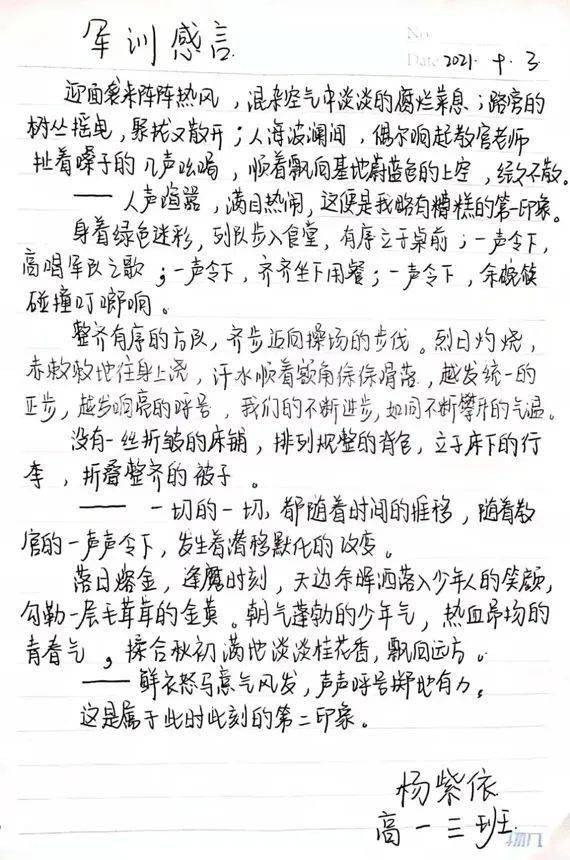 军训感言
No
Date 2021. 9. 3
迎面袭来阵阵热风，混杂空气中淡淡的腐烂菜息；路旁的
树丛摇曳，聚拢又散开；人海波澜间，偶尔响起教官老师
扯着嗓子的几声吆喝，顺着飘向基地蔚蓝色的上空，经久不散。
——人声喧嚣，满目热闹，这便是我略有糟糕的第一印象。
身着绿色迷彩，列队步入食堂，有序立于桌前；一声令下，
高唱军队之歌；一声令下，齐齐坐下用餐；一声令下，余碗筷
碰撞叮啷响。
整齐有序的方队，齐步迈向操场的步伐。烈日灼烧，
赤敕敕地往身上浇，汗水顺着额角徐徐滑落，越发统一的
正步，越发响亮的呼号，我们的不断进步，如同不断攀升的气温。
没有一丝折皱的床铺，排列规整的背包，立于床下的行
李，折叠整齐的被子。
——一切的一切，都随着时间的推移，随着教
官的一声声令下，发生着潜移默化的改变。
落日熔金，逢魔时刻，天边余晖洒落入少年人的笑颜，
勾勒一层毛茸茸的金黄。朝气蓬勃的少年气，热血昂扬的
青春气，揉合秋初满地淡淡桂花香，飘向远方。
——鲜衣怒马意气风发，声声呼号掷地有力。
这是属于此时此刻的第二印象。
杨紫依
高一三班